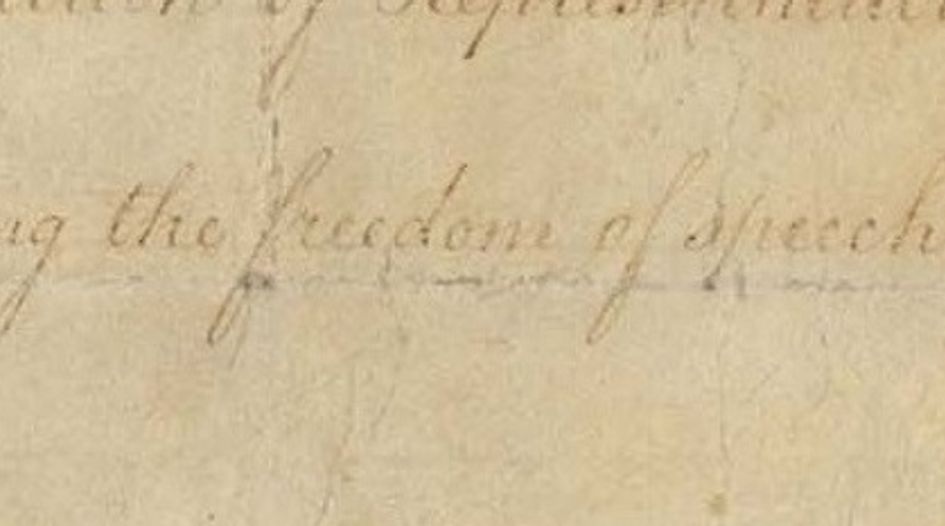 of Representatives
the freedom of speech